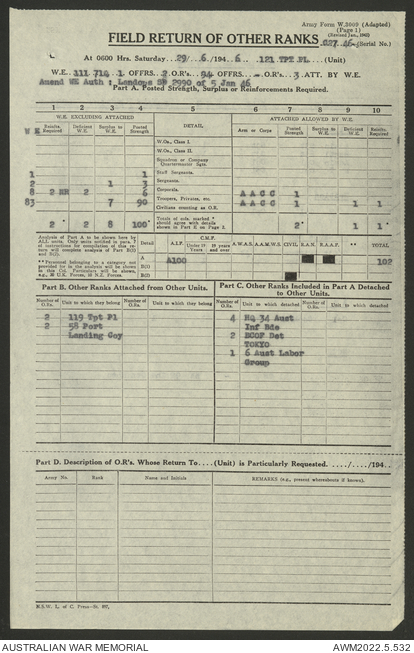 Army Form W.3009 (Adapted)
(Page 1)
(Revised Jan., 1943)
FIELD RETURN OF OTHER RANKS C27 46 (Serial No.)
At 0600 Hrs. Saturday...29/...6/194 6...121 TPT PL....(Unit)
W.E. 111 714 1 OFFRS. 2 OR's. 94 OFFRS. - OR's. 3 ATT. BY W.E.
Amend WE Auth : Landops SD 2990 of 5 Jan 46
Part A. Posted Strength, Surplus or Reinforcements Required.
1 2 3 4 5 6 7 8 9 10
W.E. EXCLUDING ATTACHED
ATTACHED ALLOWED BY W.E.
WE Reinfts. Required Deficient W.E. Surplus to W.E. Posted Strength DETAIL Arm or Corps Posted Strength Surplus to W.E. Deficient W.E. Reinfts. Required
W.Os., Class I.
W.Os., Class II.
Squadron or Company Quartermaster Sgts.
1 1 Staff Sergeants.
2 1 3 Sergeants.
8 2 NR 2 6 Corporals. A A C C 1
83 7 90 Troopers, Privates, etc. A A C C 1 1 1
Civilians counting as O.R.
2 * 2 8 100* Totals of cols. marked * should agree with details shown in Part E on Page 3. 2* 1 1 *
Analysis of Part A to be shown here by ALL units. Only units notified in para. 7 of instructions for compilation of this return will complete analysis of Part B(i) and B(ii).
**Personnel belonging to a category not provided for in the analysis will be shown in this Col. Particulars will be shown, e.g., 36 U.K. Forces, 10 N.Z. Forces.
Detail A.I.F. C.M.F. Under 19 Years 19 Years and over A.W.A.S. A.A.M.W.S. CIVIL R.A.N. R.A.A.F. ** TOTAL
A A100 102
B(i)
B(ii)
Part B. Other Ranks Attached from Other Units.
Part C. Other Ranks Included in Part A Detached to Other Units.
Number of O.Rs. Unit to which they belong Number of O.Rs. Unit to which they belong Number of O.Rs. Unit to which detached Number of O.Rs. Unit to which detached
2 119 Tpt Pl 4 HQ 34 Aust
2 58 Port Inf Bde
Landing Coy 2 BCOF Det
TOKYO
1 6 Aust Labor
Group
Part D. Description of O.R's. Whose Return To....(Unit) is Particularly Requested...../...../194..
Army No. Rank Name and Initials REMARKS (e.g., present whereabouts if known).
AUSTRALIAN WAR MEMORIAL AWM2022.5.532